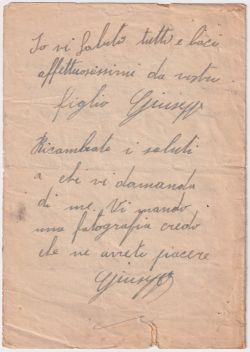 Io vi Saluto tutti e baci
affettuosissimi da vostro
figlio Giusepp
Ricambiate i saluti
a chi vi domanda
di me. Vi mando
una fatografia credo
che ne avrete piacere
Giusepp